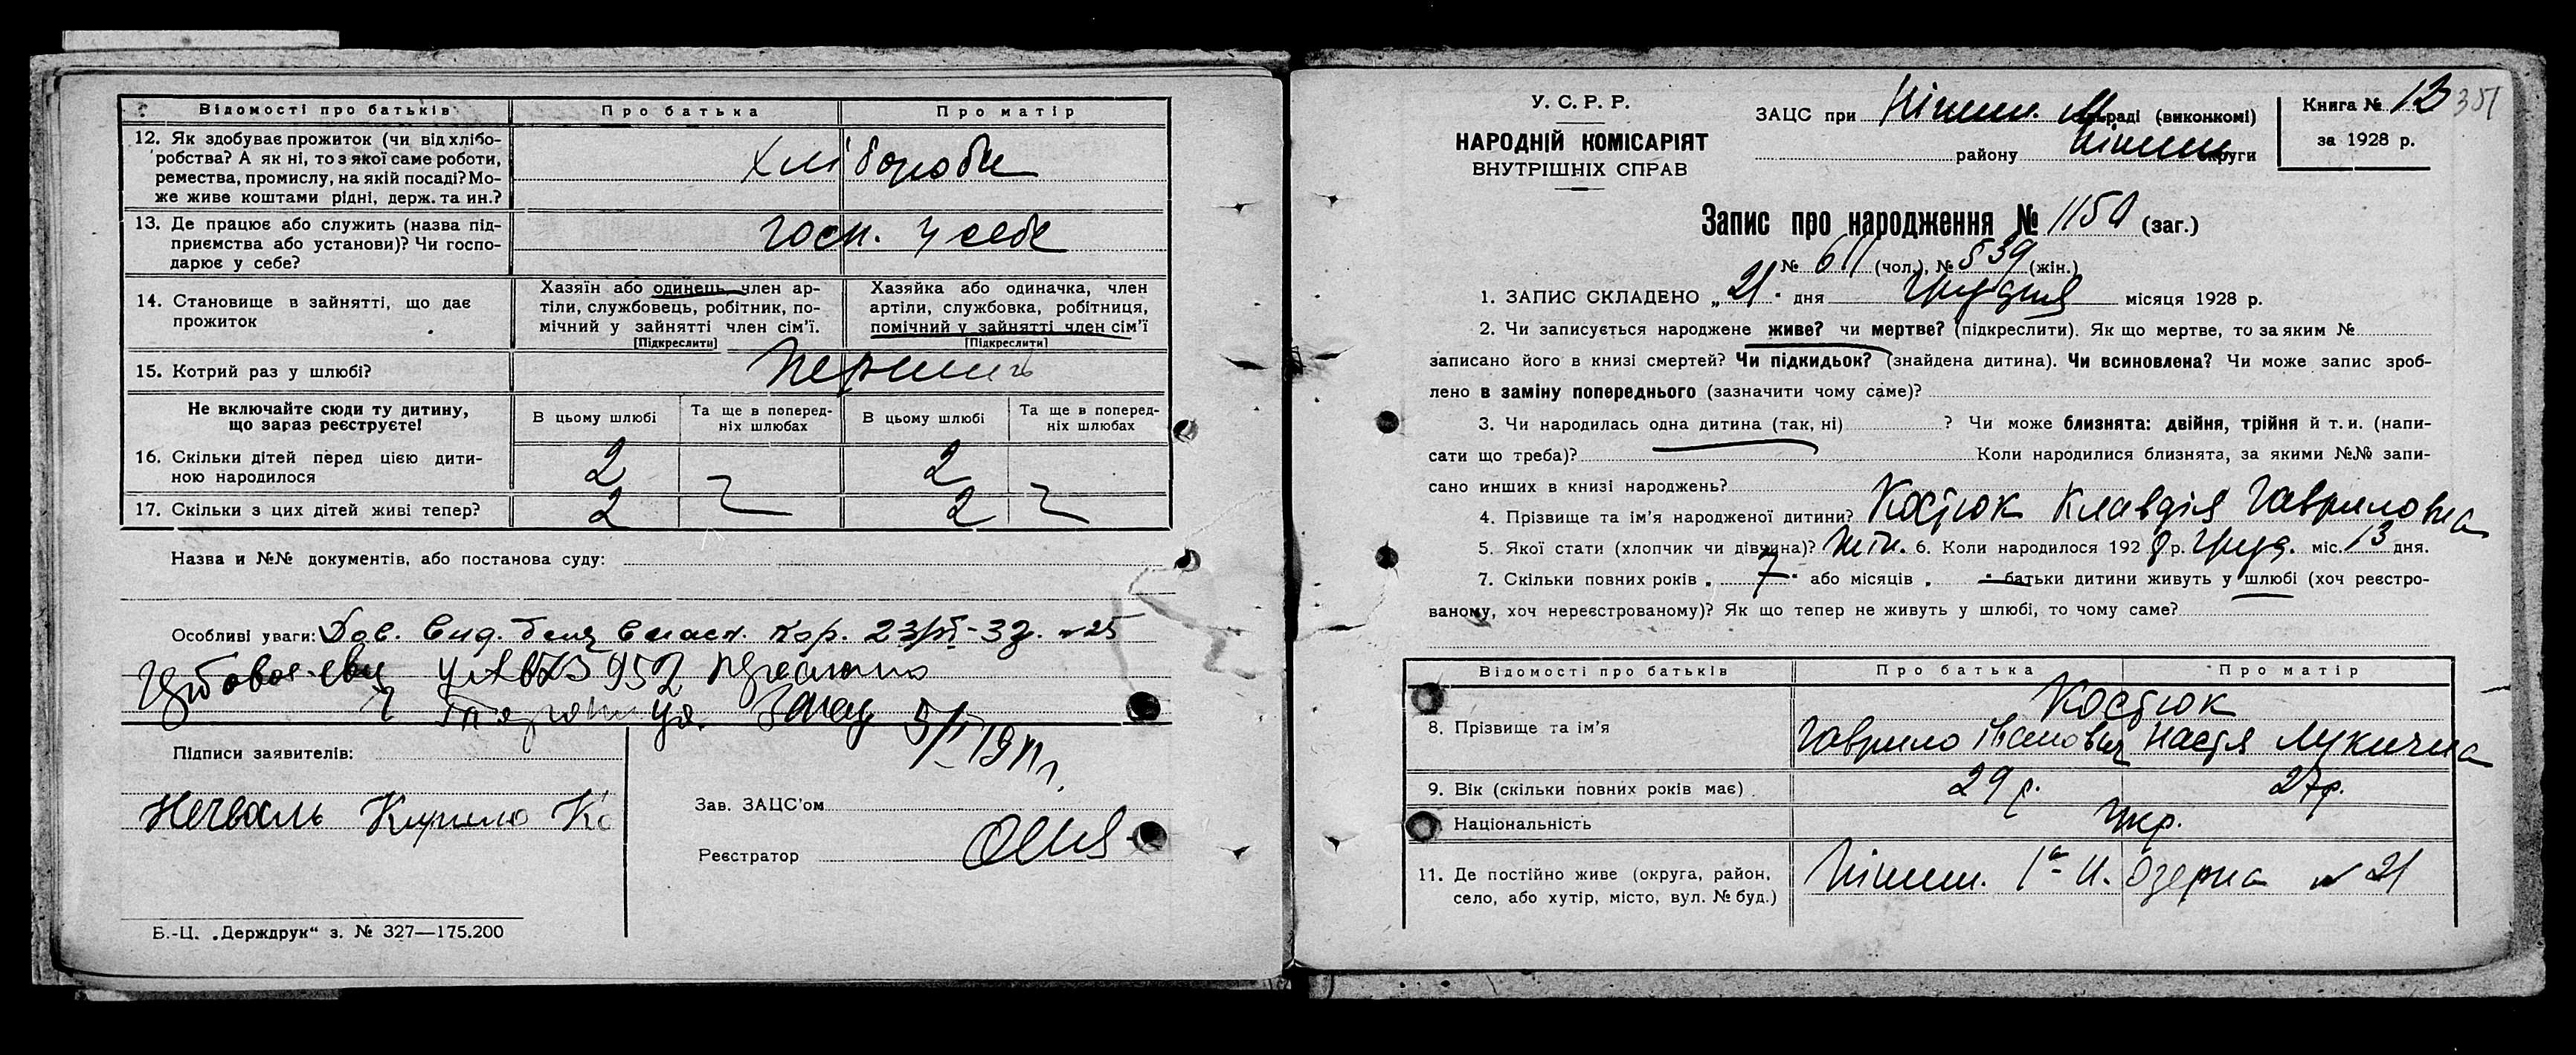 Відомості про батьків Про батька Про матір
12. Як здобуває прожиток (чи від хлібо-
робства? А як ні, то з якої саме роботи,
ремества, промислу, на якій посаді? Мо-
же живе коштами рідні, держ. та ин.?
хлібороби
13. Де працює або служить (назва під-
приємства або установи)? Чи госпо-
дарює у себе?
госп. у себе
14. Становище в зайнятті, що дає
прожиток
Хазяїн або одинець, член ар-
тіли, службовець, робітник, по-
мічний у зайнятті член сім'ї.
[Підкреслити]
Хазяйка або одиначка, член
артіли, службовка, робітниця,
помічний у зайнятті член сім'ї
[Підкреслити]
15. Котрий раз у шлюбі?
Не включайте сюди ту дитину,
що зараз реєструєте!
В цьому шлюбі
Та ще в поперед-
ніх шлюбах
В цьому шлюбі
Та ще в поперед-
ніх шлюбах
16. Скільки дітей перед цією дити-
ною народилося
2 2
17. Скільки з цих дітей живі тепер? 2 2
Назва и №№ документів, або постанова суду:
Особливі уваги: Дов. вид.
Підписи заявителів:
Нечваль Кирило
Зав. ЗАЦС'ом
Реєстратор
Б.-Ц. „Держдрук“ з. № 327—175.200
У. С. Р. Р.
НАРОДНІЙ КОМІСАРІЯТ
ВНУТРІШНІХ СПРАВ
ЗАЦС при Ніжин. раді (виконкомі)
району Ніжин округи
Книга № 12
351
за 1928 р.
Запис про народження № 1150 (заг.)
№ 611 (чол.), № 539 (жін.)
1. ЗАПИС СКЛАДЕНО „21“ дня Грудня місяця 1928 р.
2. Чи записується народжене живе? чи мертве? (підкреслити). Як що мертве, то за яким №
записано його в книзі смертей? Чи підкидьок? (знайдена дитина). Чи всиновлена? Чи може запис зроб-
лено в заміну попереднього (зазначити чому саме)?
3. Чи народилась одна дитина (так, ні) ? Чи може близнята: двійня, трійня й т. и. (напи-
сати що треба)? Коли народилися близнята, за якими №№ запи-
сано инших в книзі народжень?
4. Прізвище та ім'я народженої дитини? Костюк Клавдія Гавриловна
5. Якої стати (хлопчик чи дівчина)? жін. 6. Коли народилося 1928 р. Груд. міс. 13 дня.
7. Скільки повних років „7“ або місяців „ “ батьки дитини живуть у шлюбі (хоч реєстро-
ваному, хоч нереєстрованому)? Як що тепер не живуть у шлюбі, то чому саме?
Відомості про батьків Про батька Про матір
Костюк
8. Прізвище та ім'я Гаврило Іванович Настя Лукична
9. Вік (скільки повних років має) 29 р. 27 р.
Національність Укр.
11. Де постійно живе (округа, район,
село, або хутір, місто, вул. № буд.)
Ніжин. Озерна № 21